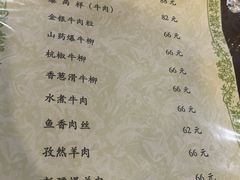 (牛肉) 68元
金银牛肉粒 82元
山药爆牛柳 66元
杭椒牛柳 66元
香葱滑牛柳 66元
水煮牛肉 66元
鱼香肉丝 62元
孜然羊肉 66元
66元